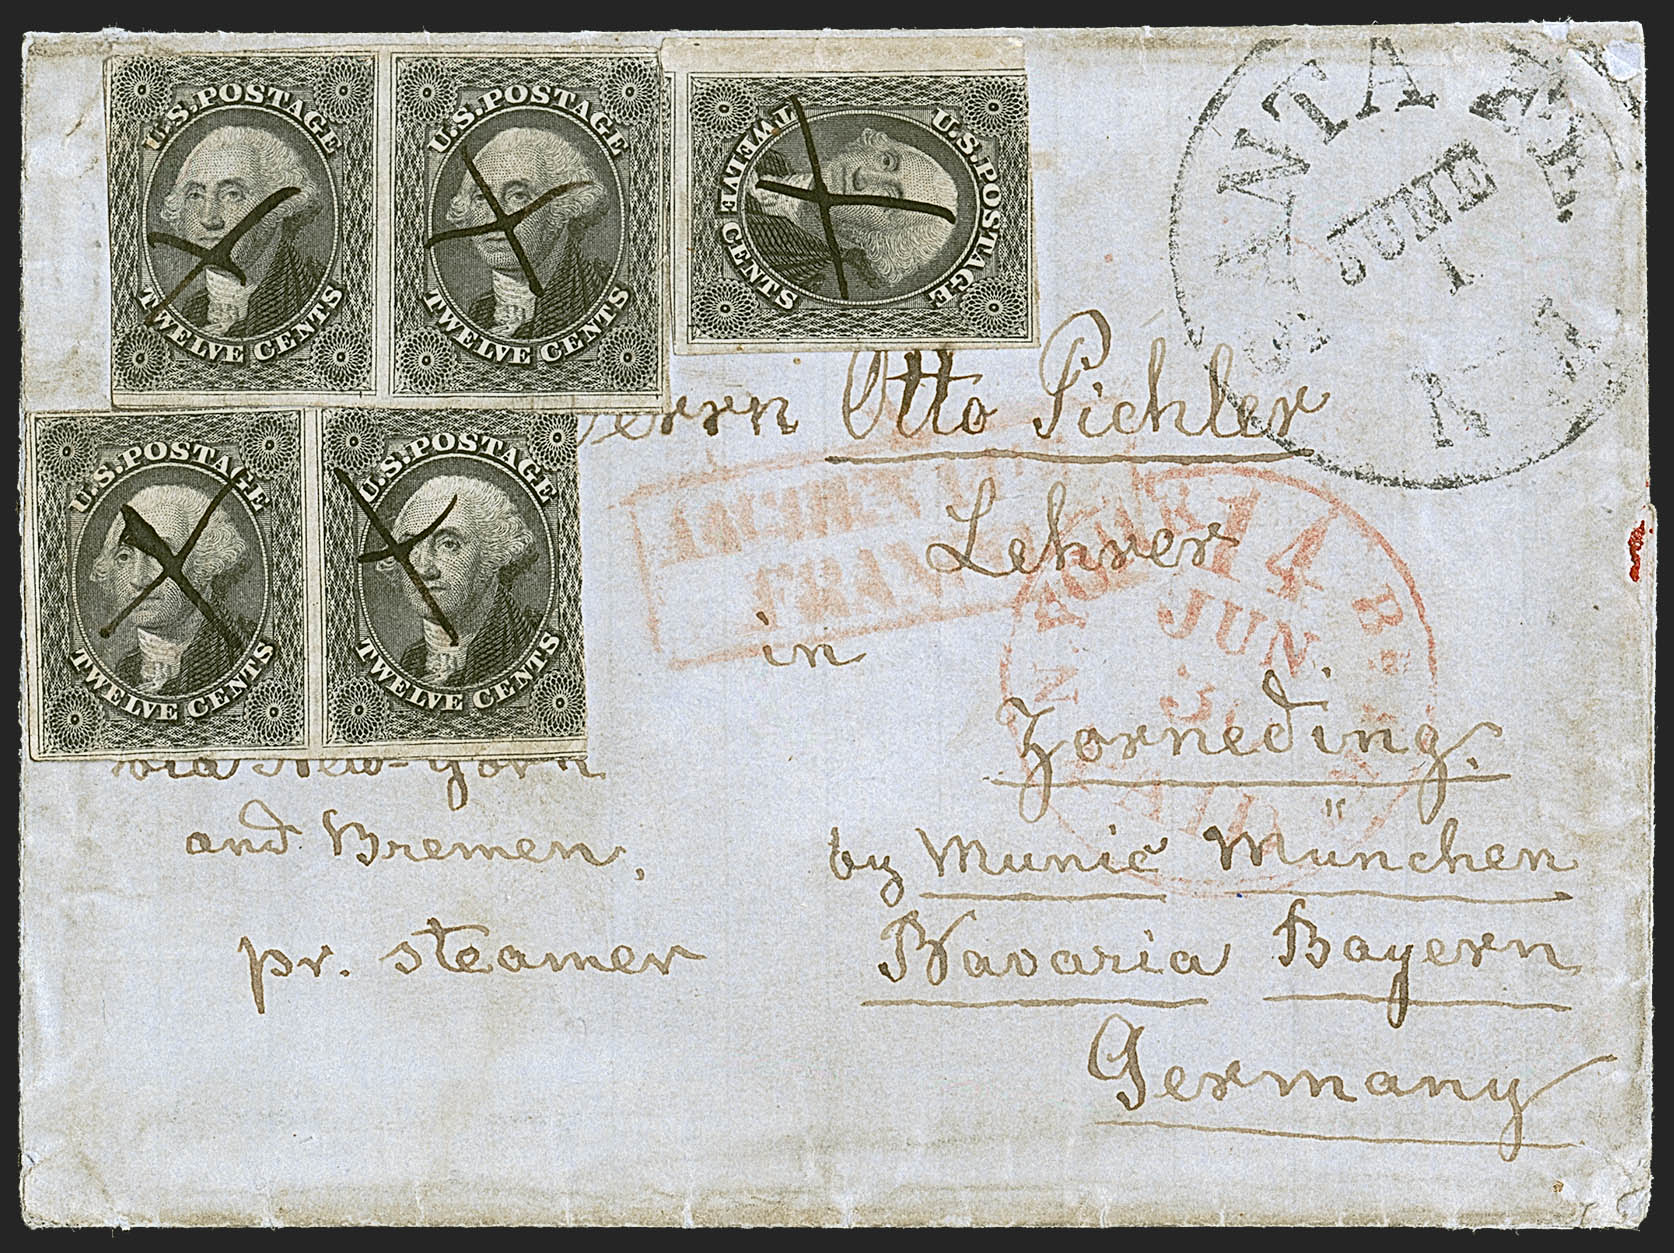 U.S. POSTAGE
TWELVE CENTS
U.S. POSTAGE
TWELVE CENTS
U.S. POSTAGE
TWELVE CENTS
U.S. POSTAGE
TWELVE CENTS
U.S. POSTAGE
TWELVE CENTS
SANTA FE
JUNE
1
N.M.
Herrn Otto Pichler
Lehrer
in
Zorneding.
by Munic München
Bavaria Bayern
Germany
via New-York
and Bremen,
pr. steamer
AACHEN
FRANCO
N. YORK 14 BR.
JUN
PAID